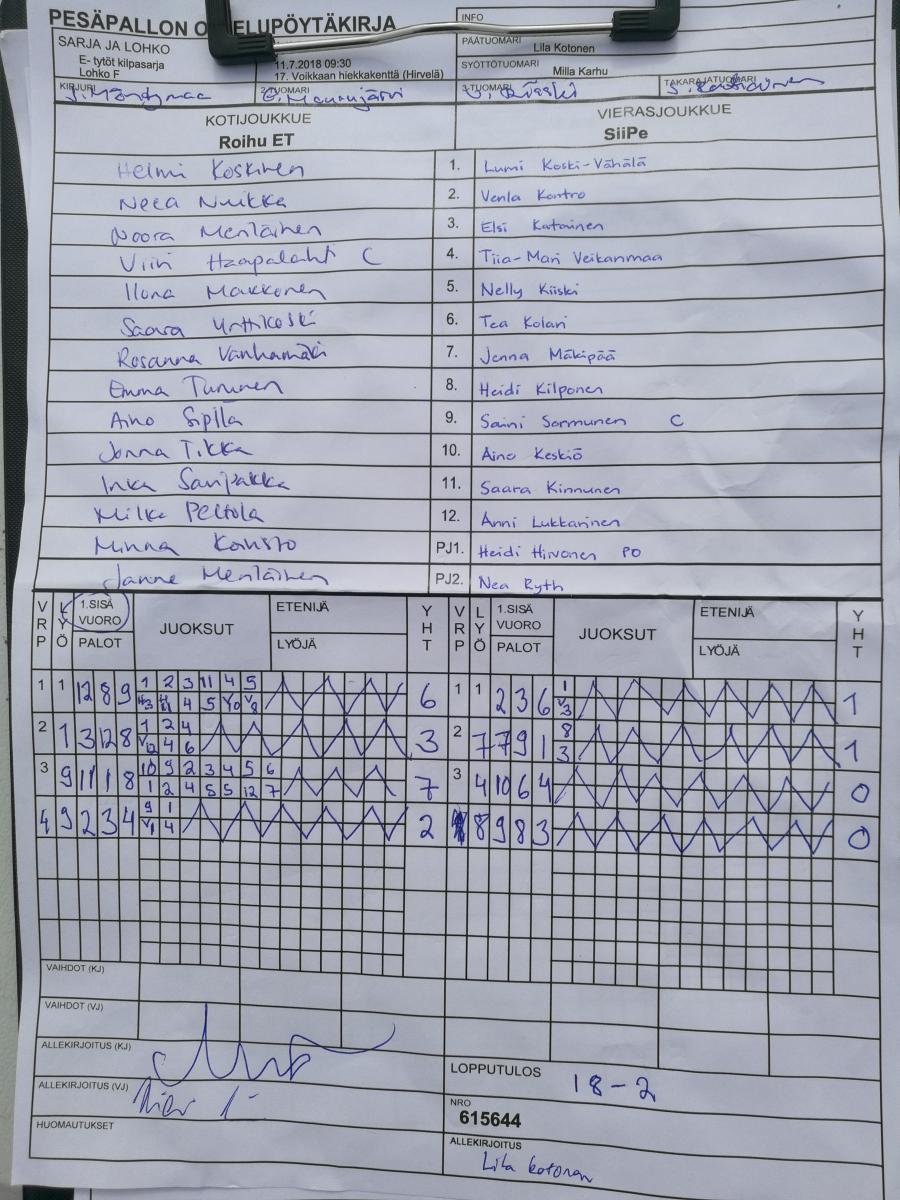 PESÄPALLON OTTELUPÖYTÄKIRJA
INFO
SARJA JA LOHKO
E- tytöt kilpasarja
Lohko F
11.7.2018 09:30
17. Voikkaan hiekkakenttä (Hirvelä)
PÄÄTUOMARI Lila Kotonen
SYÖTTÖTUOMARI Milla Karhu
KIRJURI
2-TUOMARI
3-TUOMARI
TAKARAJATUOMARI
KOTIJOUKKUE VIERASJOUKKUE
Roihu ET SiiPe
Helmi Koskinen 1. Lumi Koski-Vähälä
Neea Nuikka 2. Venla Kontro
Noora Mentäinen 3. Elsi Katainen
Viivi Haapalahti C 4. Tiia-Mari Veikanmaa
Ilona Makkonen 5. Nelly Kiiski
Saara 6. Tea Kolari
Rosanna Vanhamäki 7. Jenna Mäkipää
Emma Turunen 8. Heidi Kilponen
Aino Sipilä 9. Saini Sormunen C
Jonna Tikka 10. Aino Keskiö
Inka Saripakka 11. Saara Kinnunen
Milka Peltola 12. Anni Lukkarinen
Minna PJ1. Heidi Hirvonen PO
Janne Mentäinen PJ2. Nea Ryth
VRP LYÖ 1.SISÄ VUORO PALOT JUOKSUT ETENIJÄ LYÖJÄ YHT VRP LYÖ 1.SISÄ VUORO PALOT JUOKSUT ETENIJÄ LYÖJÄ YHT
1 1 12 8 9 1 2 3 11 4 5 6 1 1 2 3 6 1 1
4 5 V3
2 1 3 12 8 1 2 4 3 2 7 7 9 1 8 1
V12 4 6 3
3 9 11 1 8 10 9 2 3 4 5 6 7 3 4 10 6 4 0
1 2 4 5 5 12 7
4 9 2 3 4 9 1 2 8 9 8 3 0
V1 4
VAIHDOT (KJ)
VAIHDOT (VJ)
ALLEKIRJOITUS (KJ)
ALLEKIRJOITUS (VJ)
HUOMAUTUKSET
LOPPUTULOS 18-2
NRO
615644
ALLEKIRJOITUS
Lila Kotonen